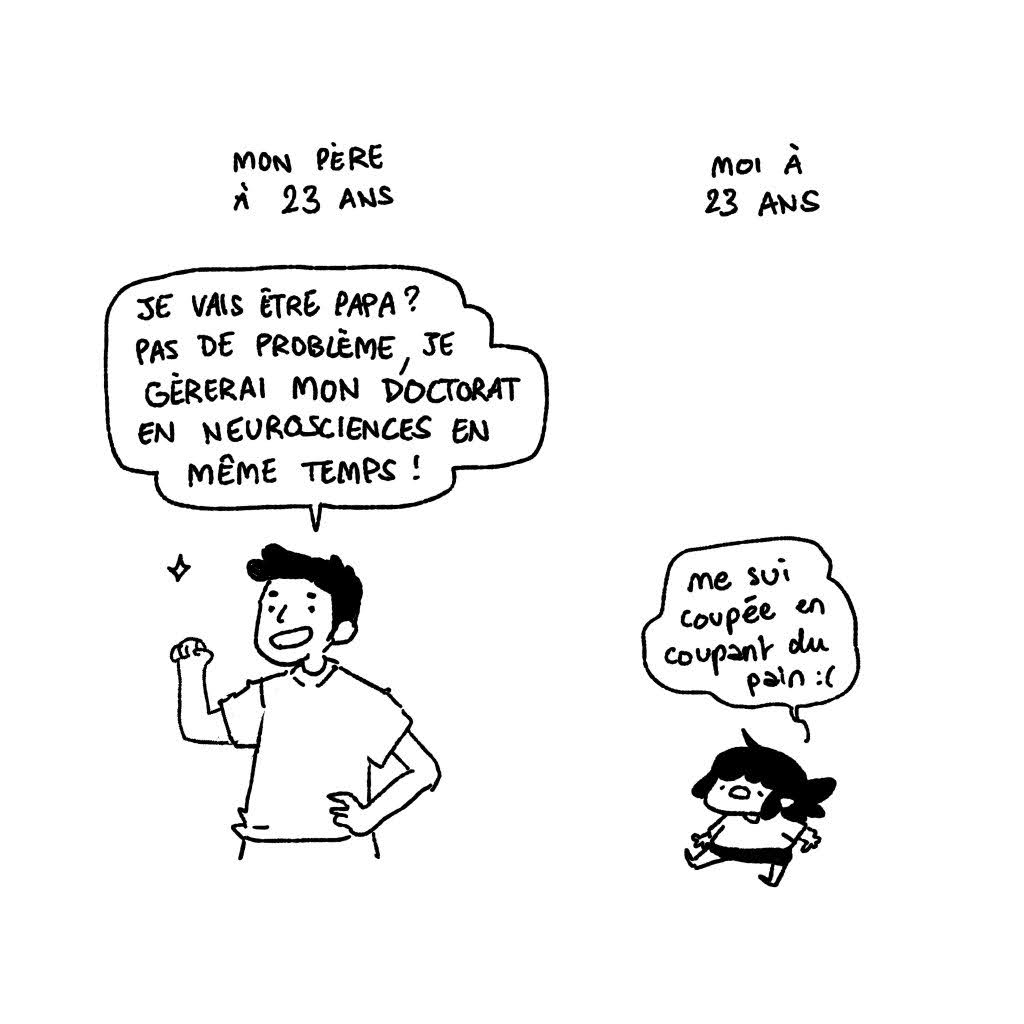 MON PÈRE
À 23 ANS
JE VAIS ÊTRE PAPA ?
PAS DE PROBLÈME, JE
GÈRERAI MON DOCTORAT
EN NEUROSCIENCES EN
MÊME TEMPS !
MOI À
23 ANS
me sui
coupée en
coupant du
pain :(